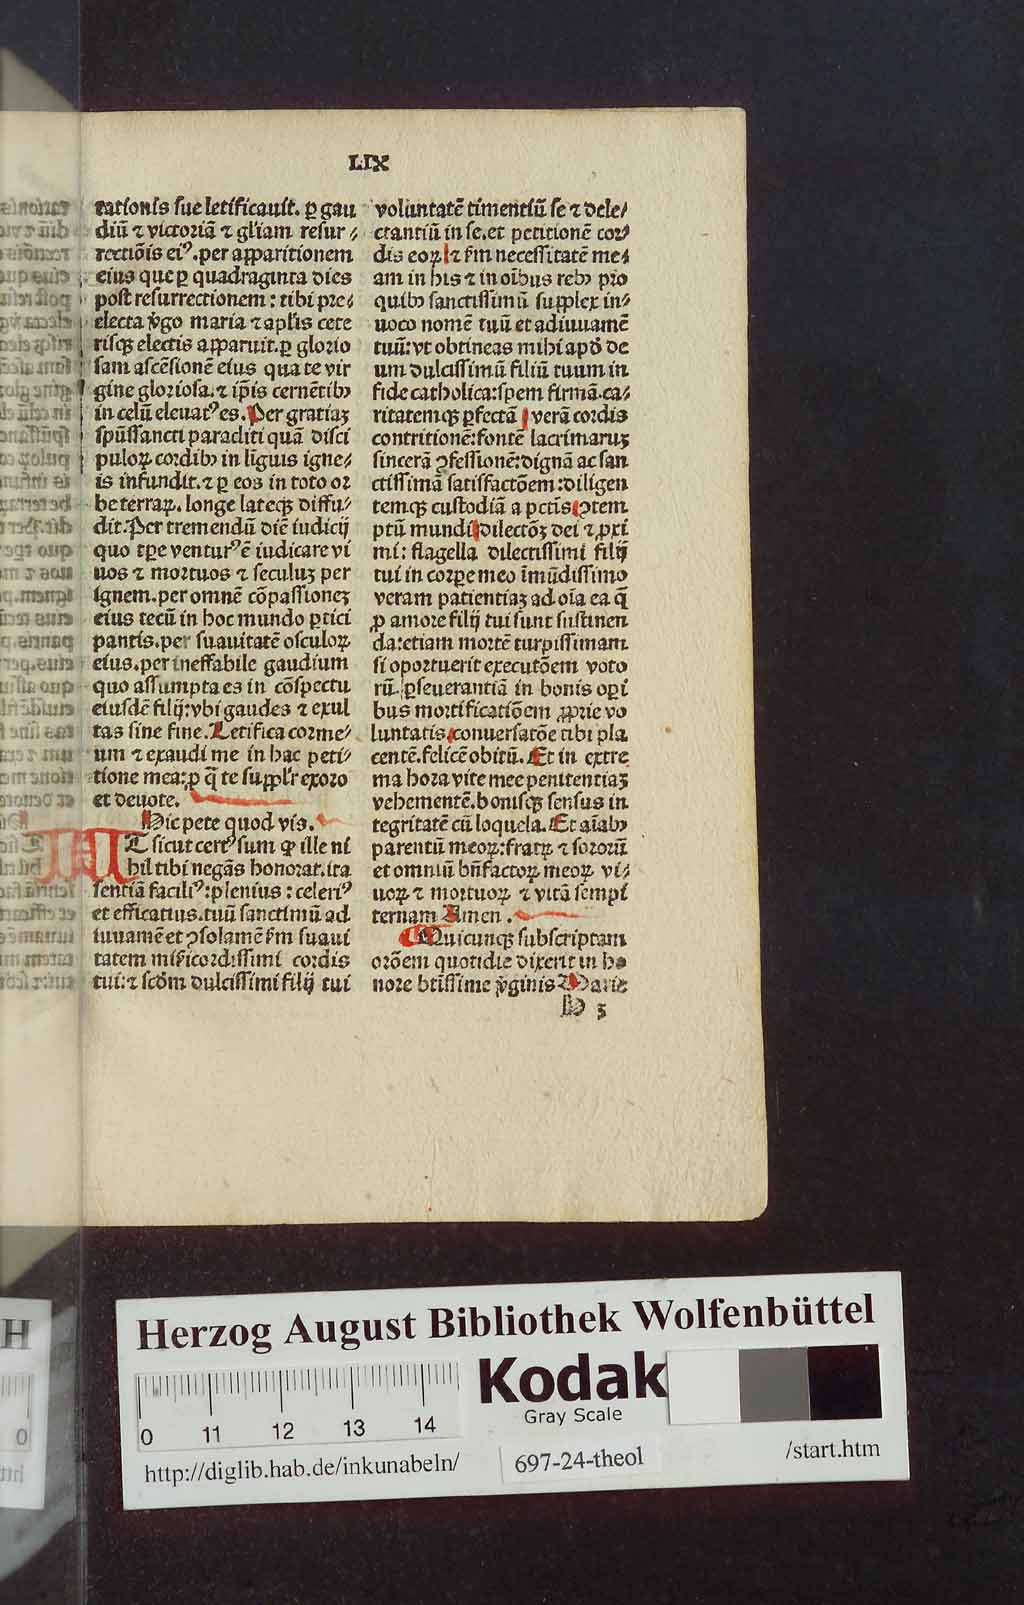 LIX
rationis sue letificauit. ꝑ gau
diū ⁊ victoriā ⁊ gl'iam resur⸗
rectiōis eiꝰ. per apparitionem
eius que ꝑ quadraginta dies
post resurrectionem: tibi pre⸗
electa v̾go maria ⁊ apl'is cete
risqꝫ electis apparuit. ꝑ glorio
sam ascēsionē eius qua te vir
gine gloriosa. ⁊ ip̄is cernētibꝰ
in celū eleuatꝰ es. Per gratiaꝫ
spūssancti paracliti quā disci
puloꝝ cordibꝰ in līguis igne⸗
is infundit. ⁊ ꝑ eos in toto or
be terraꝝ. longe lateqꝫ diffu⸗
dit. Per tremendū diē iudicij
quo tꝑe venturꝰ ē iudicare vi
uos ⁊ mortuos ⁊ seculuꝫ per
ignem. per omnē cōpassioneꝫ
eius tecū in hoc mundo ꝑtici
pantis. per suauitatē osculoꝝ
eius. per ineffabile gaudium
quo assumpta es in cōspectu
eiusdē filij: vbi gaudes ⁊ exul
tas sine fine. Letifica cor me⸗
um ⁊ exaudi me in hac peti⸗
tione mea: ꝓ q̄ te suppl'r exoro
et deuote.
Hic pete quod vis.
UT sicut certꝰ sum ꝙ ille ni
hil tibi negās honorat. ita
sentiā faciliꝰ: plenius: celeriꝰ
et efficatius. tuū sanctimū ad
iuuamē et ꝯsolamē s̄m suaui
tatem misicordissimi cordis
tui: ⁊ scd̄m dulcissimi filij tui
voluntatē timentiū se ⁊ dele⸗
ctantiū in se. et petitionē cor⸗
dis eoꝝ ⁊ s̄m necessitatē me⸗
am in his ⁊ in oībus rebꝰ pro
quibꝰ sanctissimū supplex in⸗
uoco nomē tuū et adiuuamē
tuū: vt obtineas mihi apd̄ de
um dulcissimū filiū tuum in
fide catholica: spem firmā. ca⸗
ritatemqꝫ ꝑfectā verā cordis
contritionē: fontē lacrimaruꝫ
sincerā ꝯfessionē: dignā ac san
ctissimā satisfactōem: diligen
temqꝫ custodiā a pctīs ꝯtem
ptū mundi dilectōꝫ dei ⁊ ꝓxi
mi: flagella dilectissimi filij
tui in corꝑe meo īmūdissimo
veram patientiaꝫ ad oīa ea q̄
ꝓ amore filij tui sunt sustinen
da: etiam mortē turpissimam
si oportuerit executōem voto
rū. ꝑseuerantiā in bonis oꝑi
bus mortificatiōem ꝓprie vo
luntatis conuersatōe tibi pla
centē. felicē obitū. Et in extre
ma hora vite mee penitentiaꝫ
vehementē. bonisqꝫ sensus in
tegritatē cū loquela. Et aīabꝰ
parentū meoꝝ: fratꝝ ⁊ sororū
et omniū bn̄factoꝝ meoꝝ vi⸗
uoꝝ ⁊ mortuoꝝ ⁊ vitā sempi
ternam Amen.
Quicunqꝫ subscriptam
orōem quotidie dixerit in ho
nore btīssime v̾ginis Marie
H 3
Herzog August Bibliothek Wolfenbüttel
Kodak
Gray Scale
0 11 12 13 14
http://diglib.hab.de/inkunabeln/ 697-24-theol /start.htm